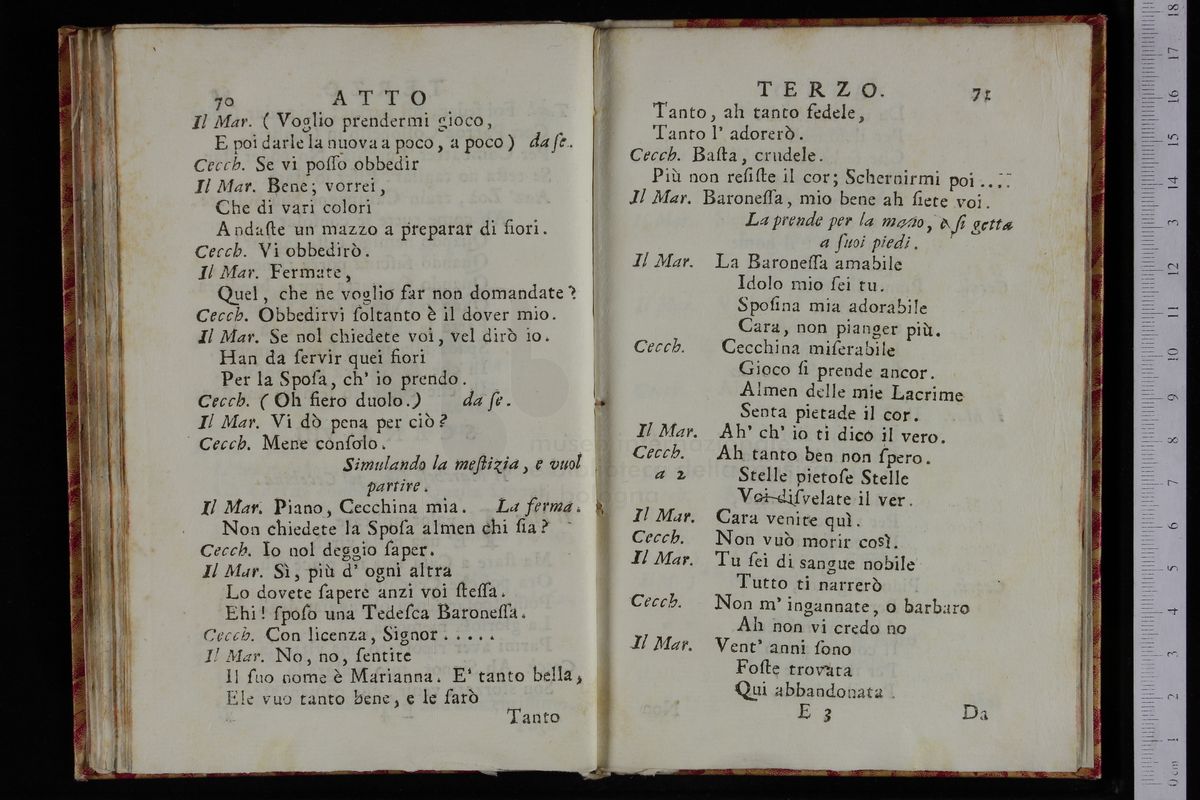 70 ATTO
Il Mar. ( Voglio prendermi gioco,
E poi darle la nuova a poco, a poco ) da ſe.
Cecch. Se vi poſſo obbedir
Il Mar. Bene; vorrei,
Che di vari colori
Andaſte un mazzo a preparar di fiori.
Cecch. Vi obbedirò.
Il Mar. Fermate,
Quel, che ne voglio far non domandate?
Cecch. Obbedirvi ſoltanto è il dover mio.
Il Mar. Se nol chiedete voi, vel dirò io.
Han da ſervir quei fiori
Per la Spoſa, ch' io prendo.
Cecch. ( Oh fiero duolo.) da ſe.
Il Mar. Vi dò pena per ciò?
Cecch. Mene conſolo.
Simulando la meſtizia, e vuol
partire.
Il Mar. Piano, Cecchina mia. La ferma.
Non chiedete la Spoſa almen chi ſia?
Cecch. Io nol deggio ſaper.
Il Mar. Sì, più d' ogni altra
Lo dovete ſapere anzi voi ſteſſa.
Ehi! ſpoſo una Tedeſca Baroneſſa.
Cecch. Con licenza, Signor . . . . .
Il Mar. No, no, ſentite
Il ſuo nome è Marianna. E' tanto bella,
Ele vuo tanto bene, e le ſarò
Tanto
TERZO. 71
Tanto, ah tanto fedele,
Tanto l' adorerò.
Cecch. Baſta, crudele.
Più non reſiſte il cor; Schernirmi poi ....
Il Mar. Baroneſſa, mio bene ah ſiete voi.
La prende per la mano, e ſi getta
a ſuoi piedi.
Il Mar. La Baroneſſa amabile
Idolo mio ſei tu.
Spoſina mia adorabile
Cara, non pianger più.
Cecch. Cecchina miſerabile
Gioco ſi prende ancor.
Almen delle mie Lacrime
Senta pietade il cor.
Il Mar. Ah' ch' io ti dico il vero.
Cecch. Ah tanto ben non ſpero.
a 2 Stelle pietoſe Stelle
Voi diſvelate il ver.
Il Mar. Cara venite quì.
Cecch. Non vuò morir così.
Il Mar. Tu ſei di sangue nobile
Tutto ti narrerò
Cecch. Non m' ingannate, o barbaro
Ah non vi credo no
Il Mar. Vent' anni ſono
Foſte trovata
Qui abbandonata.
E 3 Da